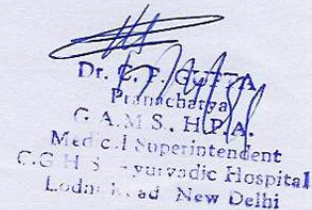 Dr. C. P. GUPTA
Pranacharya
G.A.M.S., H.P.A.
Medical Superintendent
C.G.H.S. Ayurvedic Hospital
Lodhi Road New Delhi